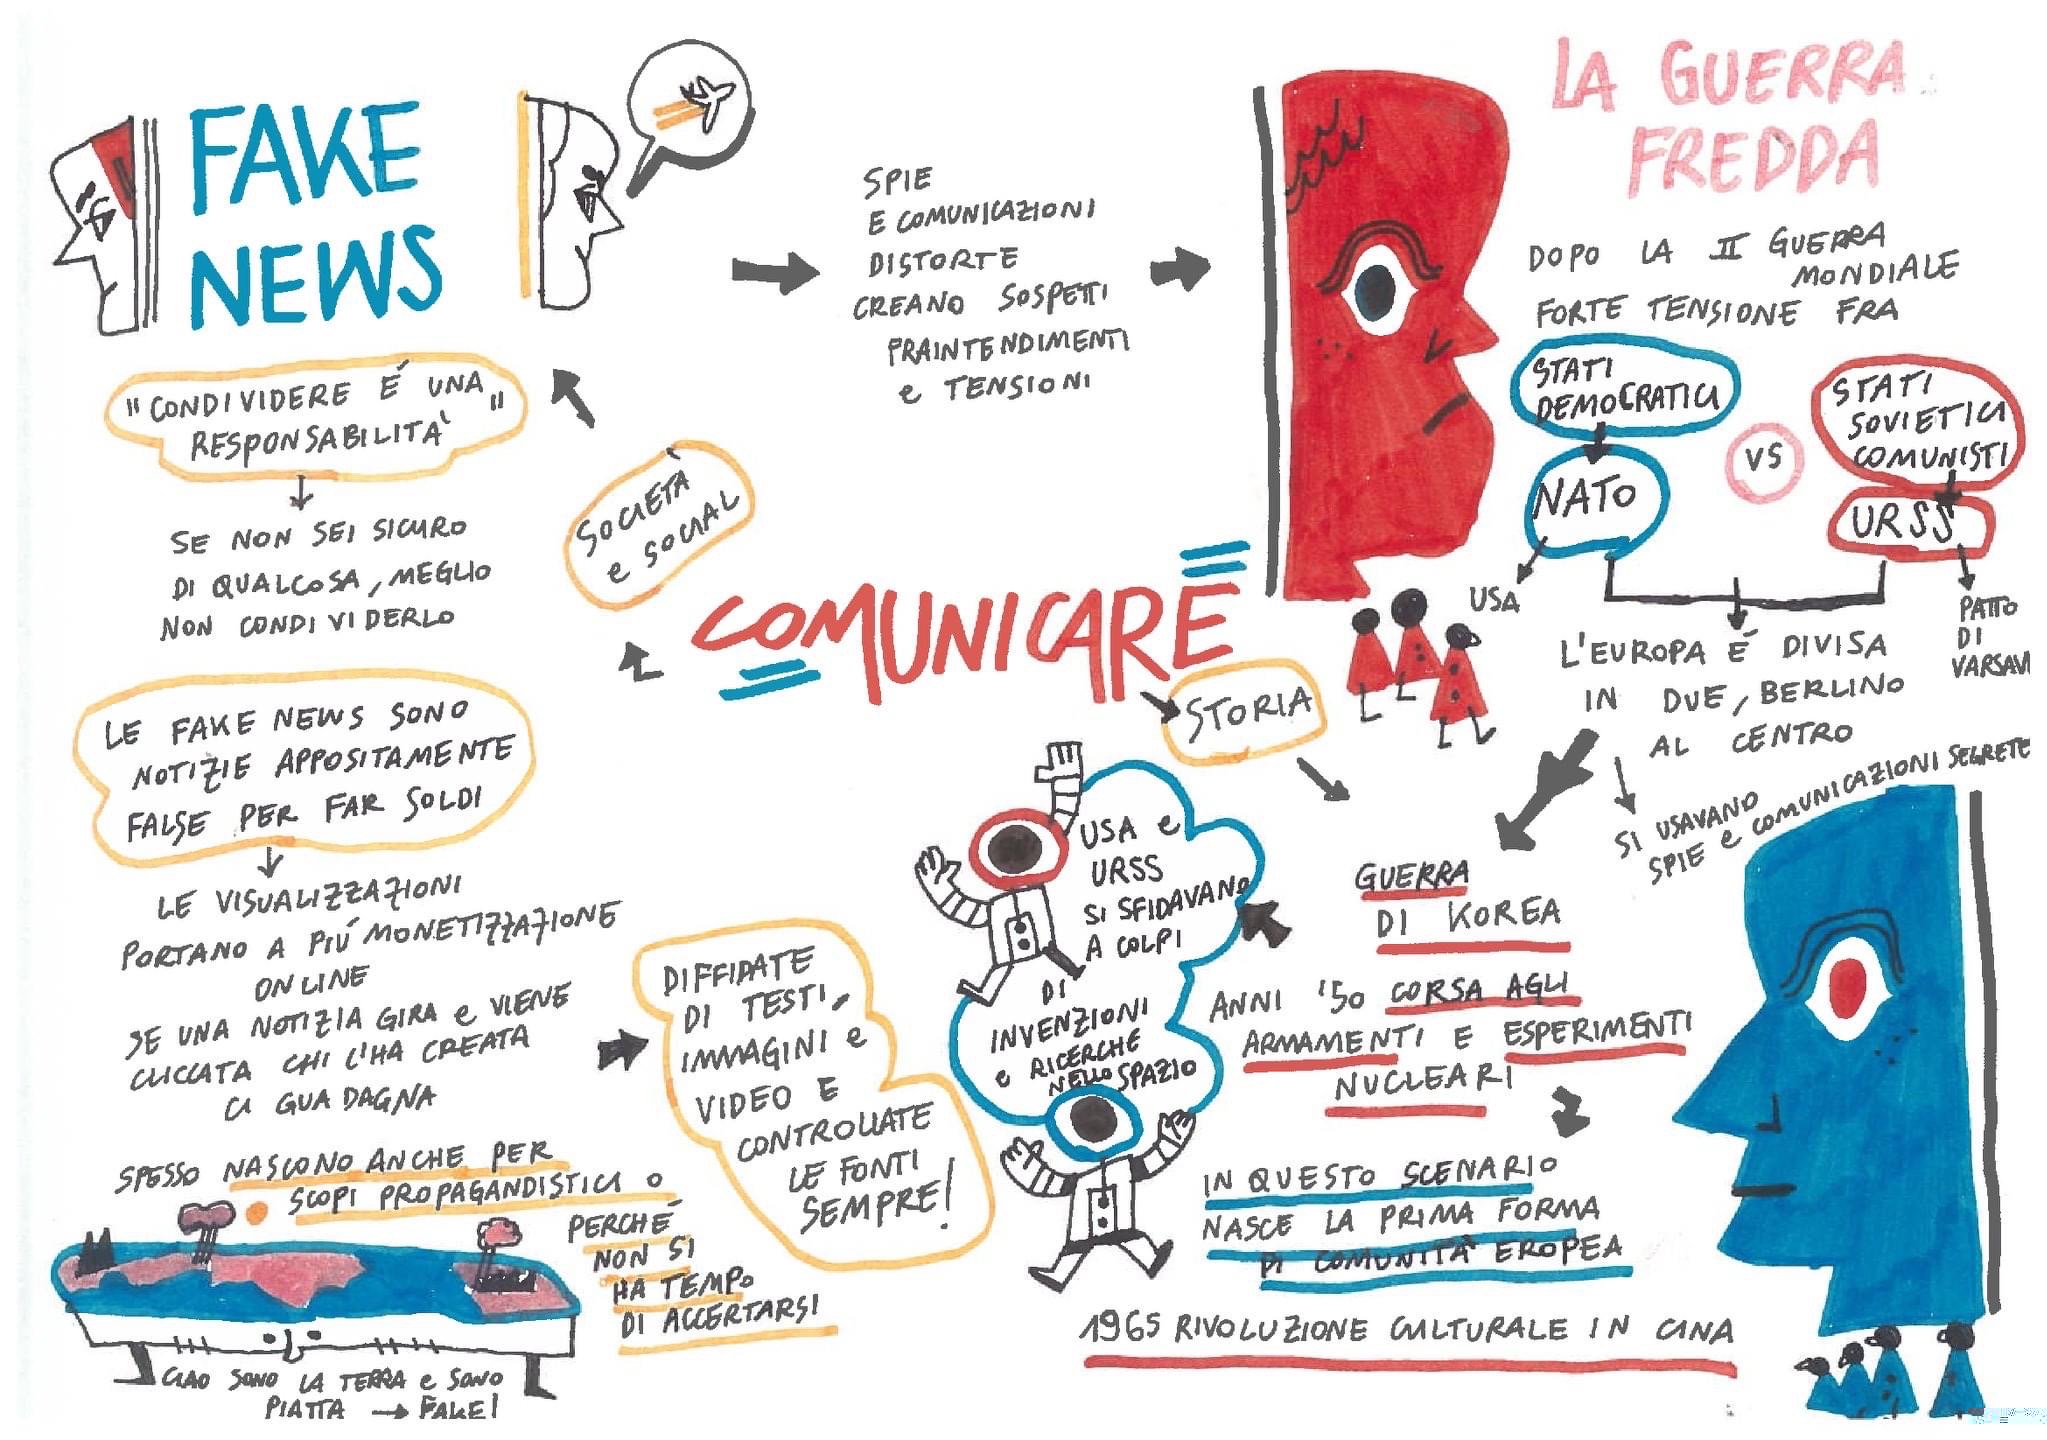 FAKE
NEWS
"CONDIVIDERE É UNA
RESPONSABILITA'"
SE NON SEI SICURO
DI QUALCOSA, MEGLIO
NON CONDIVIDERLO
LE FAKE NEWS SONO
NOTIZIE APPOSITAMENTE
FALSE PER FAR SOLDI
LE VISUALIZZAZIONI
PORTANO A PIÚ MONETIZZAZIONE
ONLINE
SE UNA NOTIZIA GIRA e VIENE
CLICCATA CHI L'HA CREATA
CI GUADAGNA
SPESSO NASCONO ANCHE PER
SCOPI PROPAGANDISTICI O
PERCHÉ
NON SI
HA TEMPO
DI ACCERTARSI
CIAO SONO LA TERRA e SONO
PIATTA → FAKE!
DIFFIDATE
DI TESTI,
IMMAGINI e
VIDEO E
CONTROLLATE
LE FONTI
SEMPRE!
SOCIETÀ
e SOCIAL
COMUNICARE
STORIA
SPIE
E COMUNICAZIONI
DISTORTE
CREANO SOSPETTI
FRAINTENDIMENTI
e TENSIONI
LA GUERRA
FREDDA
DOPO LA II GUERRA
MONDIALE
FORTE TENSIONE FRA
STATI
DEMOCRATICI
VS
STATI
SOVIETICI
COMUNISTI
NATO
URSS
USA
PATTO
DI
VARSAVI
L'EUROPA É DIVISA
IN DUE, BERLINO
AL CENTRO
SI USAVANO
SPIE e COMUNICAZIONI SEGRETE
GUERRA
DI KOREA
ANNI '50 CORSA AGLI
ARMAMENTI E ESPERIMENTI
NUCLEARI
USA e
URSS
SI SFIDAVANO
A COLPI
DI
INVENZIONI
e RICERCHE
NELLO SPAZIO
IN QUESTO SCENARIO
NASCE LA PRIMA FORMA
DI COMUNITÀ EROPEA
1965 RIVOLUZIONE CULTURALE IN CINA